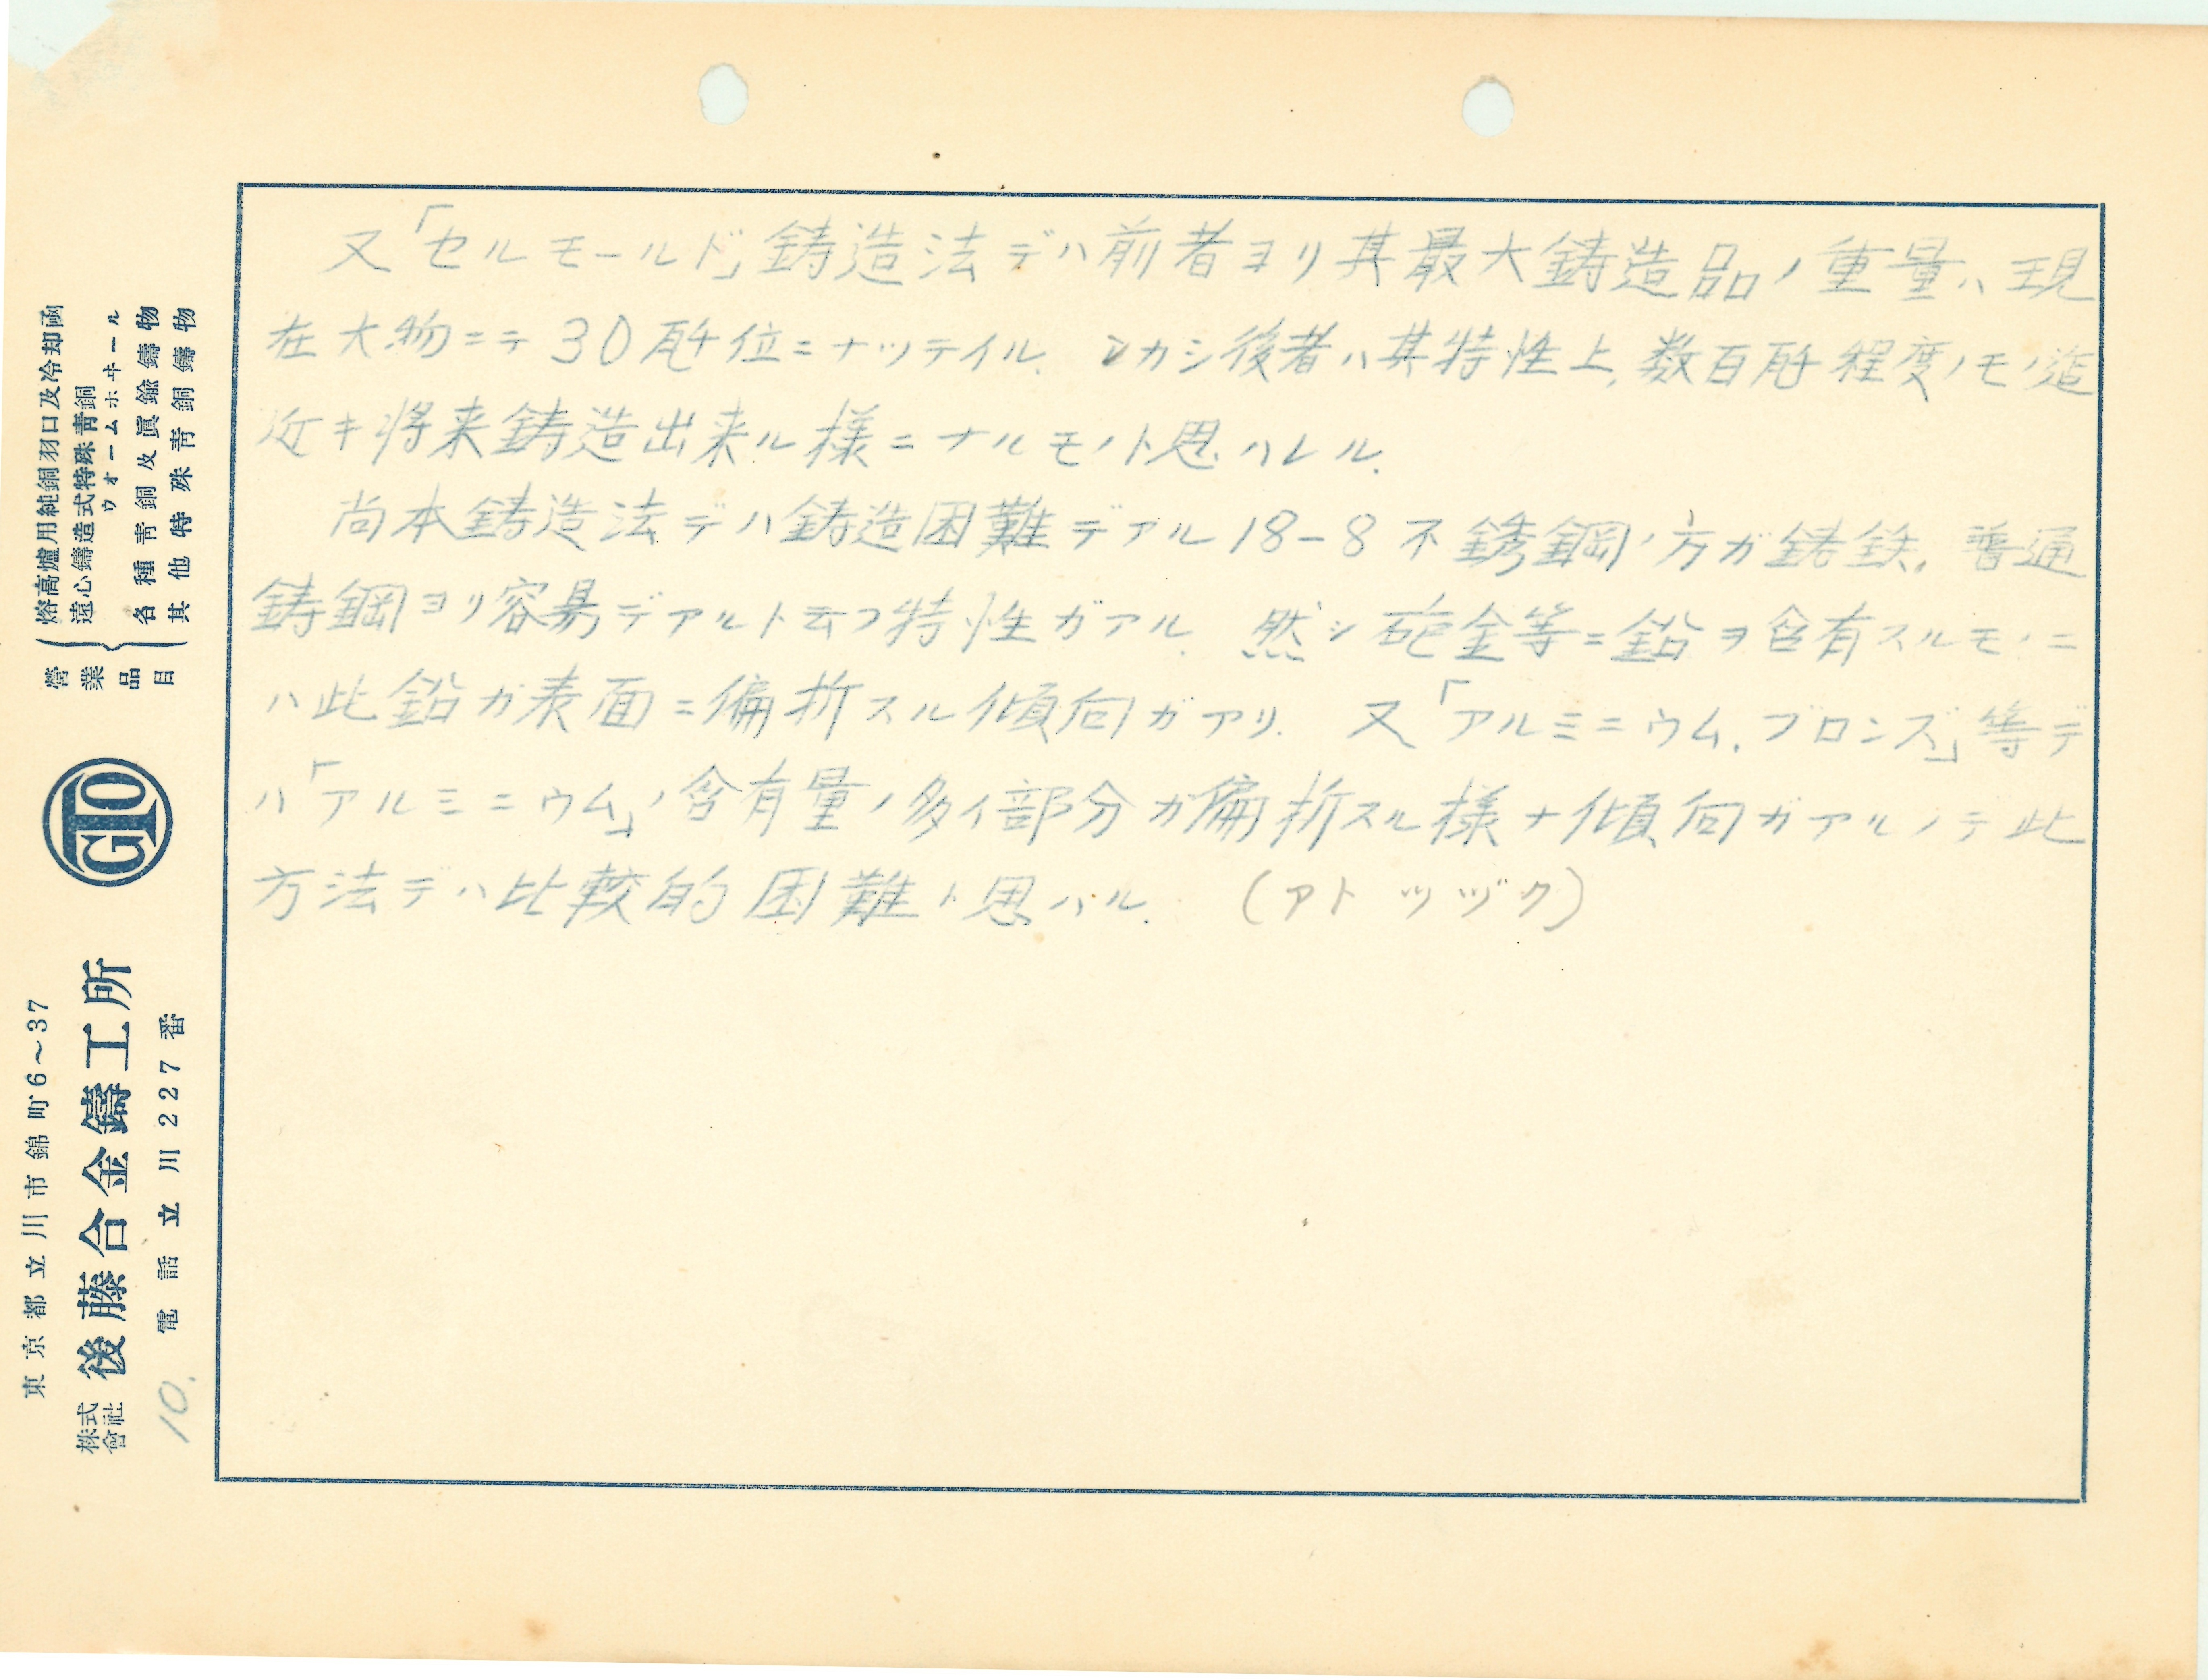 又「セルモールド」鋳造法デハ前者ヨリ其最大鋳造品ノ重量ハ現
在大物ニテ30瓩位ニナッテイル. シカシ後者ハ其特性上,数百瓩程度ノモノ迄
近キ将来鋳造出来ル様ニナルモノト思ハレル.
尚本鋳造法デハ鋳造困難デアル18-8不銹鋼ノ方ガ鋳鉄,普通
鋳鋼ヨリ容易デアルト云フ特性ガアル. 然シ砲金等ニ鉛ヲ含有スルモノニ
ハ此鉛ガ表面ニ偏折スル傾向ガアリ. 又「アルミニウム,ブロンズ」等デ
ハ「アルミニウム」ノ含有量ノ多イ部分ガ偏折スル様ナ傾向ガアルノデ此
方法デハ比較的困難ト思ハル. (アトツヅク)
營業品目
熔高爐用純銅羽口及冷却函
遠心鑄造式特殊靑銅
ウオームホヰール
各種靑銅及眞鍮鑄物
其他特殊靑銅鑄物
GTO
東京都立川市錦町6~37
株式會社 後藤合金鑄工所
電話立川227番
10.